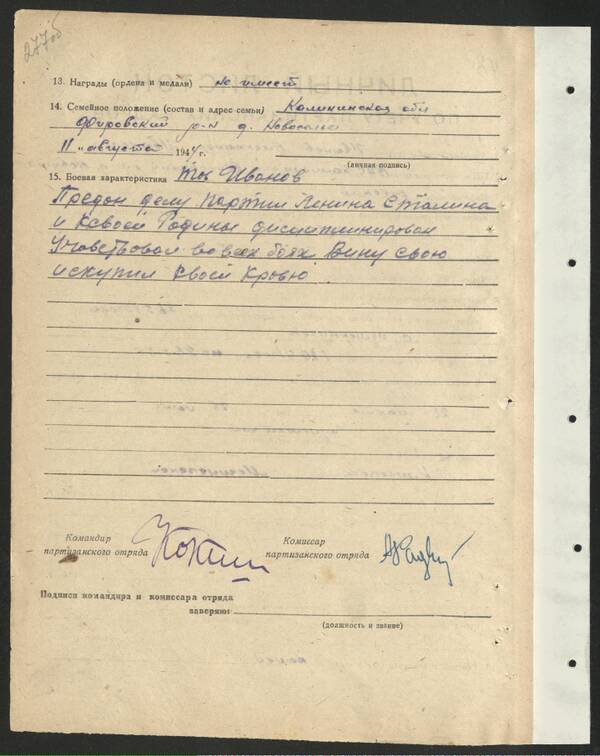 2776
13. Награды (ордена и медали) не имеет
14. Семейное положение (состав и адрес семьи) Калининская обл
Фировский р-н д. Новоселье
11 „ августа 1944 г.
(личная подпись)
15. Боевая характеристика Тов Иванов
Предон делу партии Ленина Сталина
и Ксвоей Родины дисциплинирован
Учавствовал во всех боях Вину свою
искупил Своей Кровю
Командир
партизанского отряда
Комиссар
партизанского отряда
Подписи командира и комиссара отряда
заверяю:
(должность и звание)